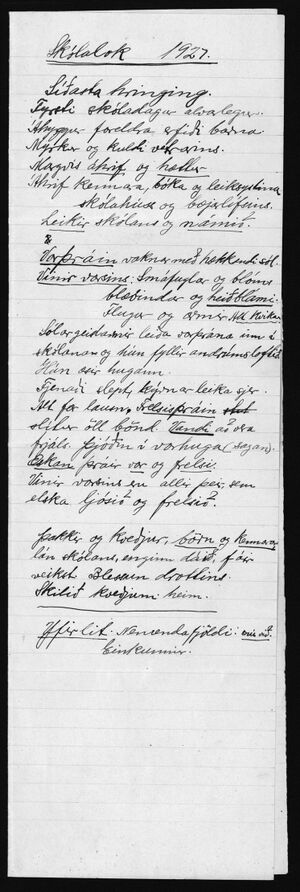 Skólalok 1927.
Síðasta hringing.
Fyrsti skóladagur alvarlegur.
Áhyggjur foreldra, erfiði barna
Myrkur og kuldi vetrarins.
Margvís áhrif og hættur
Áhrif kennara, bóka og leiksystkina
skólahúss og bæjarlífsins.
Leikir skólans og námið.
Vorþráin vaknar með hækkandi sól.
Vinir vorsins. Smáfuglar og blóm
blæðindar og heiðblámi
Flugur og ormar Alt kvikar
Sólargeislarnir leiða vorþrána inn í
skólana og hún fyllir andrúmsloftið
Hún æsir hugann.
Fjenaði slept, kýrnar leika sjer.
Alt for lausn, Frelsisþráin
slítur öll bönd. Vandi að vera
frjáls. Þjóðin í vorhuga (sagan).
Æskan þráir vor og frelsi.
Vinir vorsins eru allir þeir, sem
elska ljósið og frelsið.
Þakkir og kveðjur, börn og kennara
lán skólans, enginn dáið, fáir
veikst Blessun drottins.
Skilið kveðjunni heim.
Yfirlit. Nemendafjöldi.
Einkunnir.